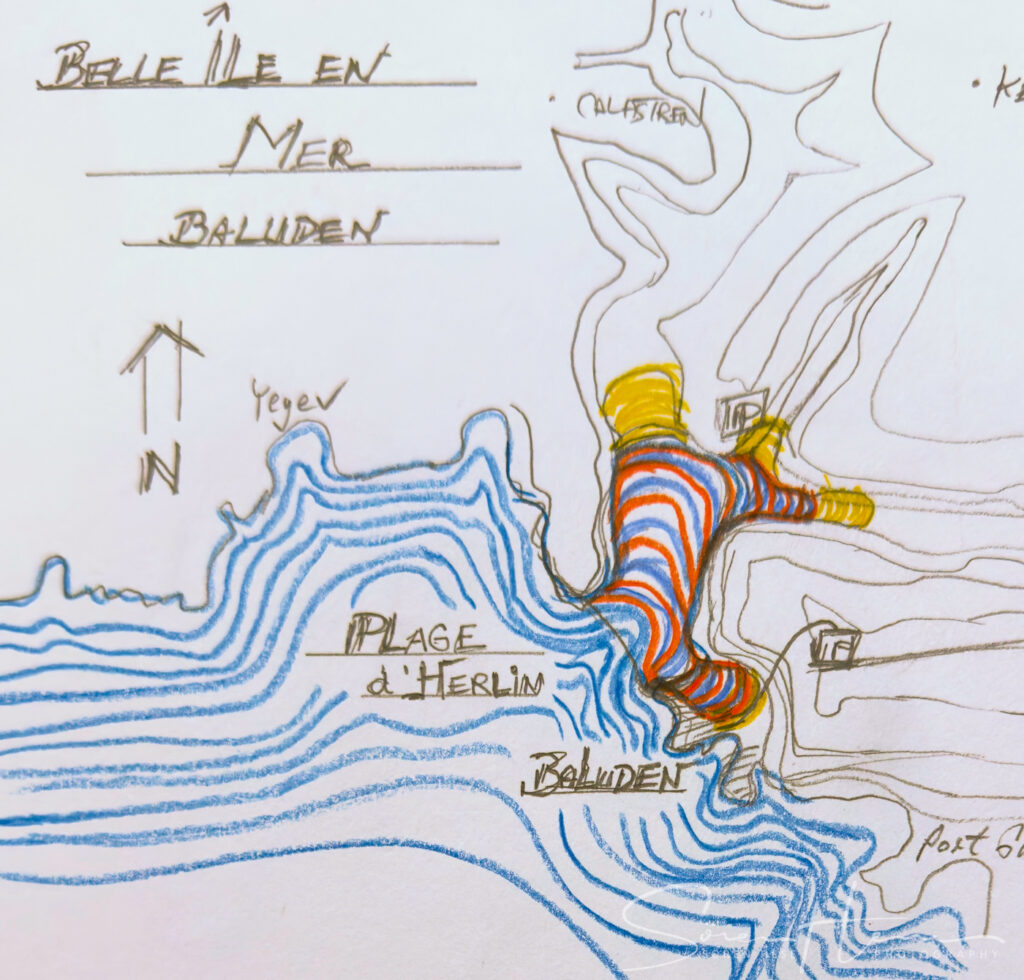 BELLE ÎLE EN
MER
BALUDEN
CALASTREN
KE
N
Yeyev
PLAGE
d'HERLIN
BALUDEN
Port
PHOTOGRAPHY